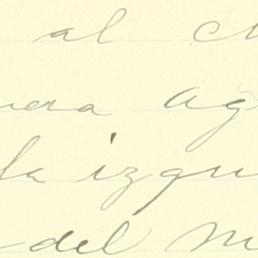 al c
uera ag
la izqu
del m